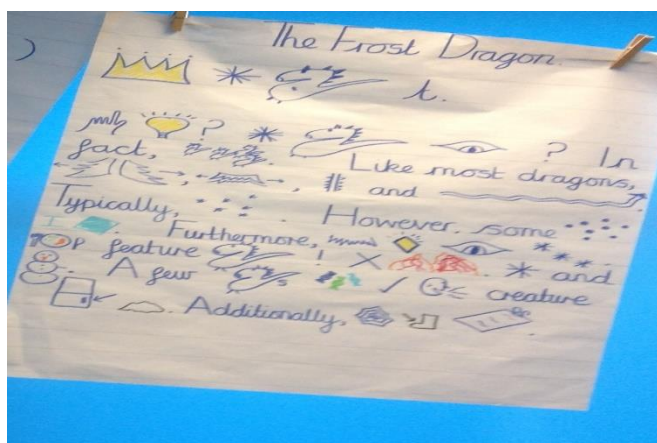 The Frost Dragon.
t.
? ? In
fact, . Like most dragons,
, , and
Typically, . However, some
. Furthermore,
TOP feature ! . and
. A few s creature
. Additionally, .